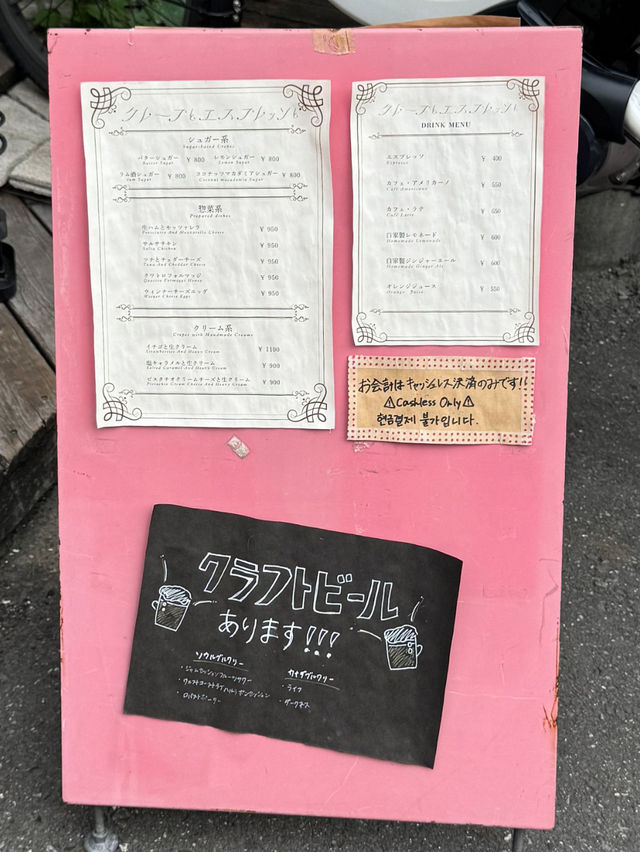 クレープとエスプレッソと
シュガー系
Sugar-based Crepes
バターシュガー ¥ 800 レモンシュガー ¥ 800
Butter Sugar Lemon Sugar
ラム酒シュガー ¥ 800 ココナッツマカダミアシュガー ¥ 800
Rum Sugar Coconut Macadamia Sugar
惣菜系
Prepared dishes
生ハムとモッツァレラ ¥ 950
Prosciutto And Mozzarella Cheese
サルサチキン ¥ 950
Salsa Chicken
ツナとチェダーチーズ ¥ 950
Tuna And Cheddar Cheese
クワトロフォルマッジ ¥ 950
Quattro Formaggi Honey
ウィンナーチーズエッグ ¥ 950
Wiener Cheese Eggs
クリーム系
Crepes with Handmade Creams
イチゴと生クリーム ¥ 1100
Strawberries And Heavy Cream
塩キャラメルと生クリーム ¥ 900
Salted Caramel And Heavy Cream
ピスタチオクリームチーズと生クリーム ¥ 900
Pistachio Cream Cheese And Heavy Cream
クレープとエスプレッソと
DRINK MENU
エスプレッソ ¥ 400
Espresso
カフェ・アメリカーノ ¥ 550
Café Americano
カフェ・ラテ ¥ 650
Café Latte
自家製レモネード ¥ 600
Homemade Lemonade
自家製ジンジャーエール ¥ 600
Homemade Ginger Ale
オレンジジュース ¥ 550
Orange Juice
お会計はキャッシュレス決済のみです!!
⚠Cashless Only⚠
현금결제 불가입니다.
クラフトビール
あります!!!
ソウルブルワリー
・ジャムセッションフルーツサワー
・ロバストポーター
カナダブルワリー
・ライフ
・ダークネス